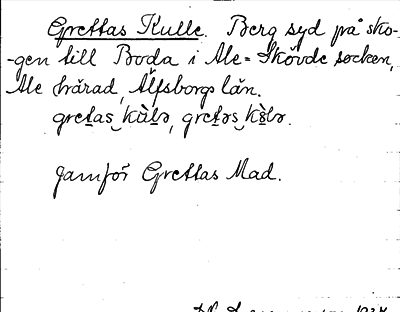 Grettas Kulle. Berg syd på sko-
-gen till Boda i Ale-Skövde socken,
Ale härad, Älfsborgs län.
gretas kùlə, gretəs kùlə.
Jämför Grettas Mad.